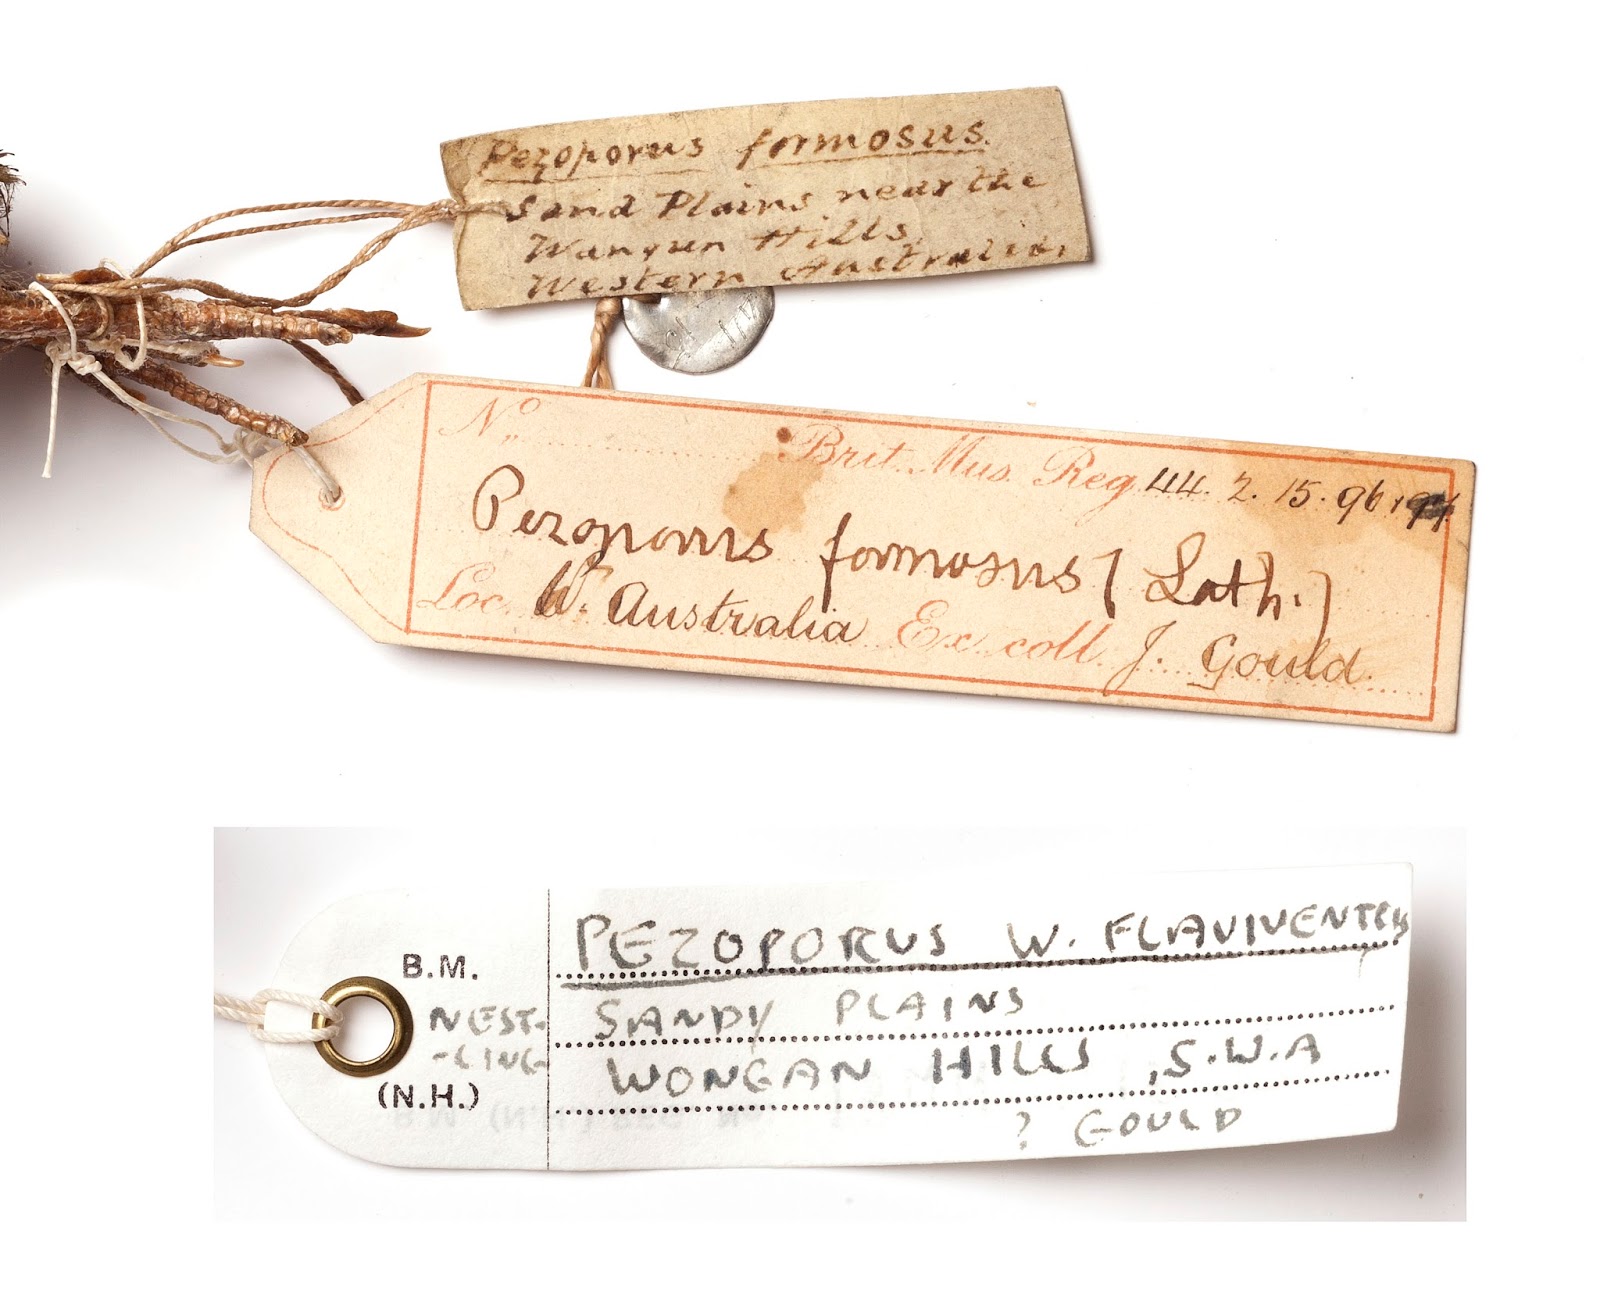 Pezoporus formosus.
Sand Plains near the
Wangun Hills,
Western Australia,
No. Brit. Mus. Reg. 44. 2. 15. 96
Pezoporus formosus (Lath.)
Loc. W. Australia Ex coll. J. Gould.
B.M.
NEST-
-LING
(N.H.)
PEZOPORUS W. FLAVIVENTRIS
SANDY PLAINS
WONGAN HILLS, S.W.A
? GOULD